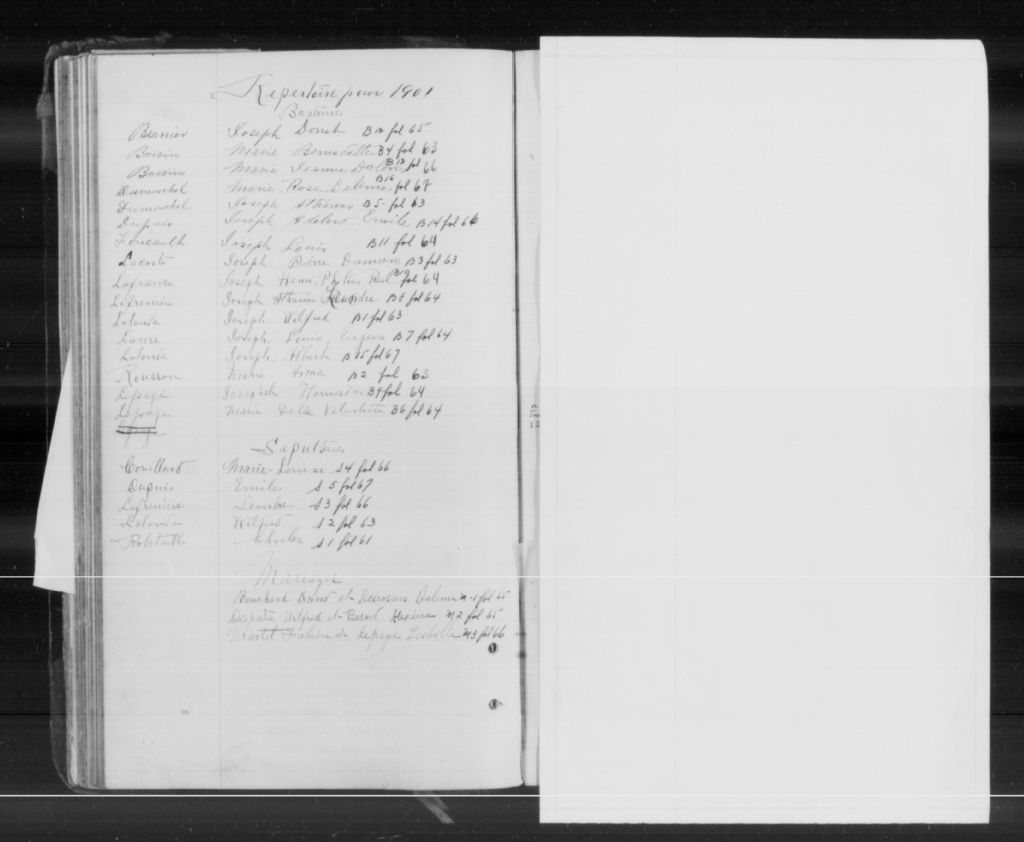 Repertoire pour 1901
Baptêmes
Bernier Joseph Donat B12 fol 65
Boivin Marie Bernadette B4 fol 63
Boivin Marie Jeanne B13 fol 66
Dumouchel Marie Rose Delima B16 fol 67
Dumouchel Joseph Athanas B5 fol 63
Dupuis Joseph Adelard Emile B14 fol 66
Foucault Joseph Louis B11 fol 64
Lacoste Joseph Pierre Damien B3 fol 63
Lafrance Joseph Henri Philias B10 fol 64
Lafreniere Joseph Athanas Leandre B8 fol 64
Lalande Joseph Wilfred B1 fol 63
Joseph Louis Eugene B7 fol 64
Joseph Albert B15 fol 67
Rousson Marie Alma B2 fol 63
Lepage Joseph B9 fol 64
Lepage Marie Delia Valentine B6 fol 64
Sepultures
Couillard Marie-Louise S4 fol 66
Dupuis Emile S5 fol 67
Lafreniere Leandre S3 fol 66
Lalande Wilfrid S2 fol 63
Robitaille Charles S1 fol 61
Mariages
Bouchard David et Desrosiers M-1 fol 65
Wilfred et M2 fol 65
Martel et Lepage M3 fol 66